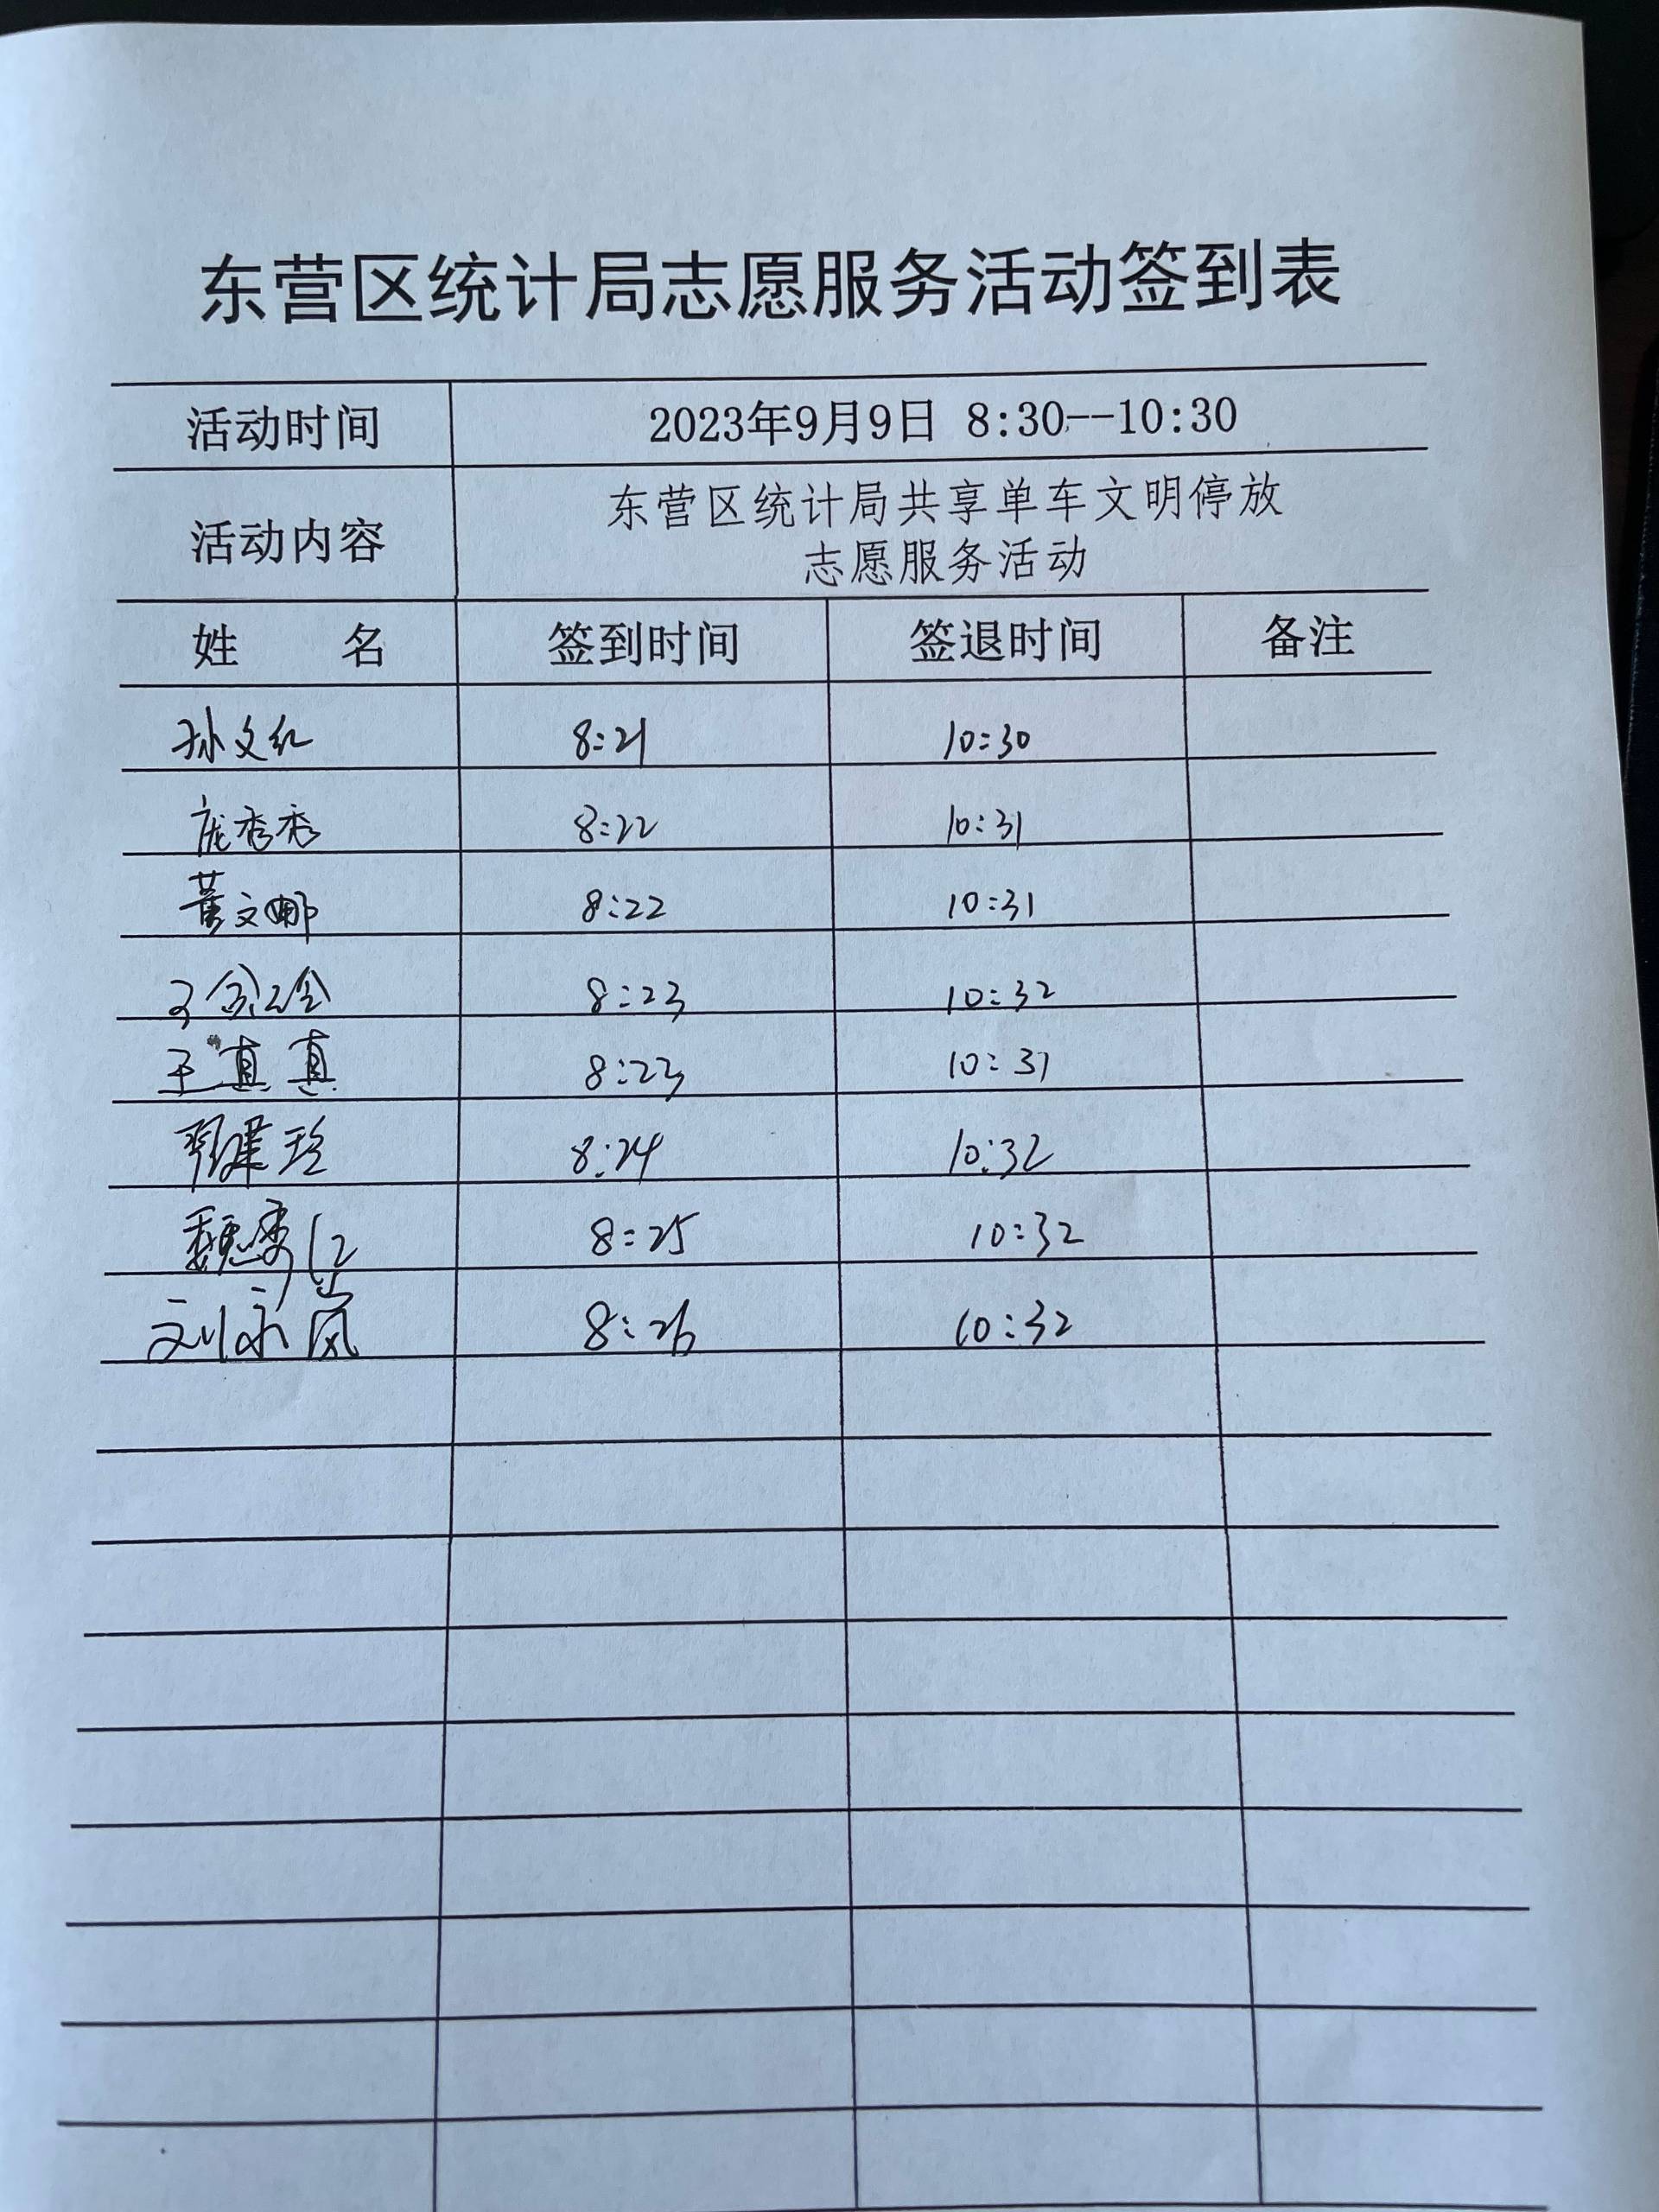 东营区统计局志愿服务活动签到表
活动时间 2023年9月9日 8:30--10:30
活动内容 东营区统计局共享单车文明停放
志愿服务活动
姓 名 签到时间 签退时间 备注
孙文红 8:21 10:30
庞秀秀 8:22 10:31
黄文娜 8:22 10:31
8:23 10:32
王真真 8:23 10:31
8:24 10:32
魏秀江 8:25 10:32
刘永岚 8:26 10:32